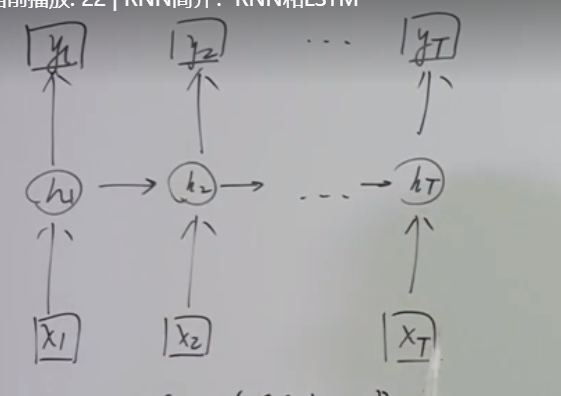 前播放: 22 | RNN简介：RNN和LSTM
y1 y2 ... yT
h1 h2 ... hT
x1 x2 ... xT